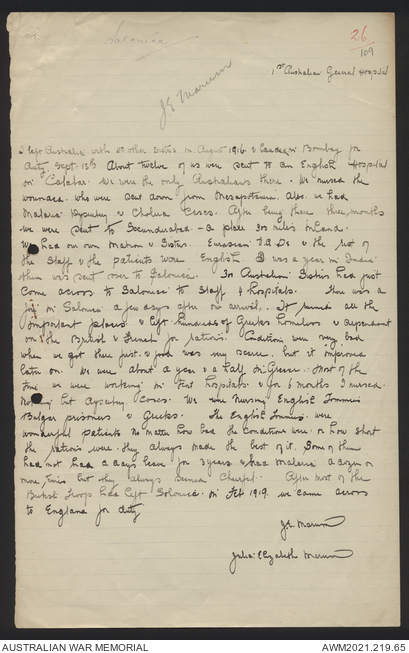 Salonica
26
109
1st Australian General Hospital
J E Marum
I left Australia with other Sisters in August 1916 & landed in Bombay for
duty Sept 13th About twelve of us were sent to an English Hospital
on Colaba. We were the only Australians there. We nursed the
wounded who were sent down from Mesopotamia. Also we had
Malaria Dysentry & Cholera Cases. After being there three months
we were sent to Secunderabad - a place 300 miles inland.
We had our own Matron & Sisters. Eurasian V.A.Ds & the rest of
the Staff & the patients were English I was a year in India
then was sent over to Salonica. 300 Australian Sisters had just
come across to Salonica to Staff 4 hospitals. There was a
fire in Salonica a few days after our arrival. It ruined all the
important places & left hundreds of Greeks homeless & dependent
on the British & French for rations. Conditions were very bad
when we got there first & food was very scarce. but it improved
later on. We were about a year & a half in Greece. Most of the
time we were working in Tent hospitals & for 6 months I nursed
nothing but Dysentry Cases. We were nursing English Tommies
Bulgar prisoners & Greeks. The English Tommies were
wonderful patients no matter how bad the conditions were. or how short
the rations were. they always made the best of it. Some of them
had not had a days leave for 3 years & had Malaria a dozen or
more times but they always seemed cheerful. After most of the
British troops had left Salonica in Feb 1919 we came across
to England for duty
J.E. Marum
Julia Elizabeth Marum
AUSTRALIAN WAR MEMORIAL
AWM2021.219.65